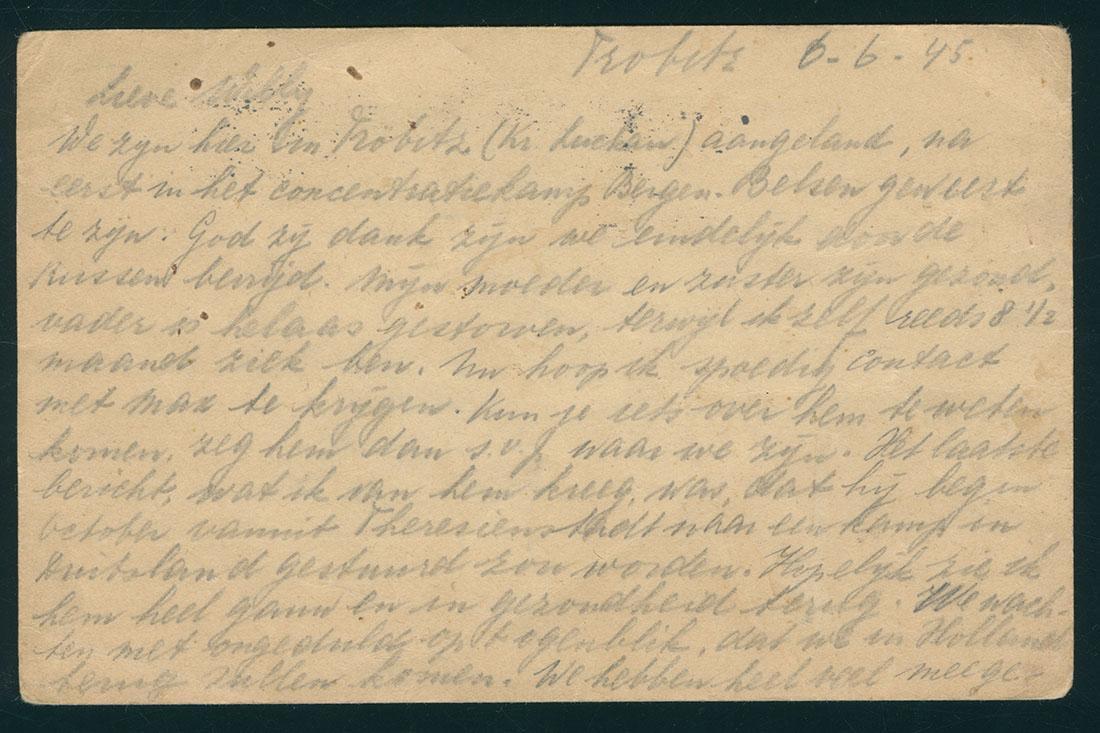 Trobitz 6-6-45.
Lieve Wibby
We zyn hier in Trobitz (Kr. Luckau) aangeland, na
eerst in het concentratiekamp Bergen-Belsen geweest
te zyn. God zy dank zyn we eindelyk door de
Russen bevryd. Myn moeder en zuster zyn gezond,
vader is helaas gestorven, terwyl ik zelf reeds 8 1/2
maand ziek ben. Nu hoop ik spoedig contact
met Max te krygen. Kun je iets over hem te weten
komen, zeg hem dan s.v.p. waar we zyn. Het laatste
bericht, wat ik van hem kreeg, was, dat hy begin
October vanuit Theresienstadt naar een kamp in
Duitsland gestuurd zou worden. Hopelyk zie ik
hem heel gauw en in gezondheid terug. We wach-
ten met ongeduld op 't ogenblik, dat we in Holland
terug zullen komen. We hebben heel veel meege-